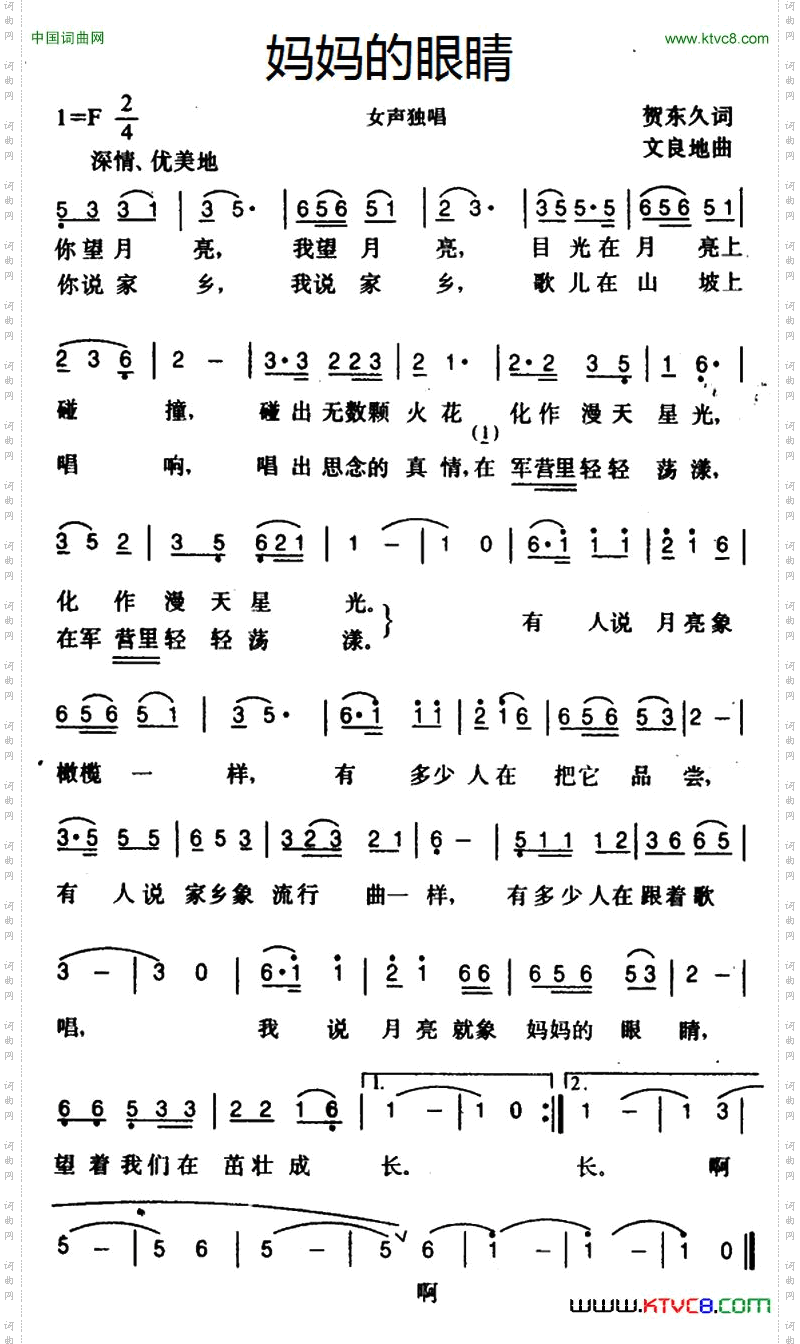 中国词曲网
www.ktvc8.com
妈妈的眼睛
1=F 2/4
女声独唱
贺东久词
深情、优美地
文良地曲
5 3 3 1 | 3 5· | 6 5 6 5 1 | 2 3· | 3 5 5·5 | 6 5 6 5 1 |
你望月 亮, 我望月 亮, 目光在月 亮上
你说家 乡, 我说家 乡, 歌儿在山 坡上
2 3 6 | 2 – | 3·3 2 2 3 | 2 1· | 2·2 3 5 | 1 6· |
碰 撞, 碰出无数颗火花 化作漫天星光,
(1)
唱 响, 唱出思念的真情,在军营里轻轻荡漾,
3 5 2 | 3 5 6 2 1 | 1 – | 1 0 | 6·i i i | 2 i 6 |
化作漫天星 光。
在军营里轻轻荡 漾。
有 人说月亮象
6 5 6 5 1 | 3 5· | 6·i i i | 2 i 6 | 6 5 6 5 3 | 2 – |
橄榄一 样, 有 多少人在把它品尝,
3·5 5 5 | 6 5 3 | 3 2 3 2 1 | 6 – | 5 1 1 1 2 | 3 6 6 5 |
有 人说家乡象流行曲一样, 有多少人在跟着歌
3 – | 3 0 | 6·i i | 2 i 6 6 | 6 5 6 5 3 | 2 – |
唱, 我 说月亮就象妈妈的眼 睛,
6 6 5 3 3 | 2 2 1 6 | 1. 1 – | 1 0 :| 2. 1 – | 1 3 |
望着我们在茁壮成 长。 长。 啊
5 – | 5 6 | 5 – | 5 6 | i – | i – | i – | i 0 ‖
啊
www.KTVC8.com